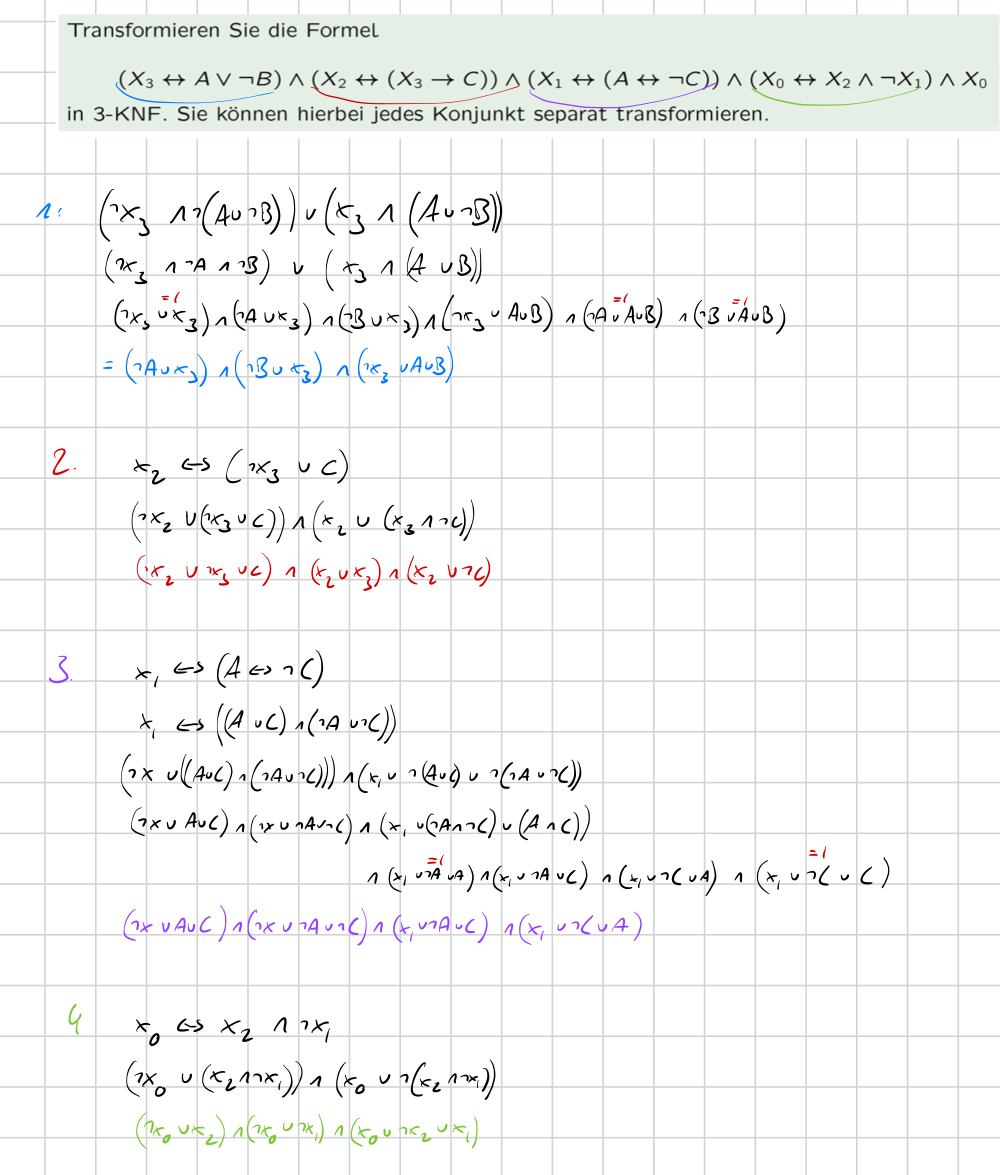 Transformieren Sie die Formel
(X₃ ↔ A ∨ ¬B) ∧ (X₂ ↔ (X₃ → C)) ∧ (X₁ ↔ (A ↔ ¬C)) ∧ (X₀ ↔ X₂ ∧ ¬X₁) ∧ X₀
in 3-KNF. Sie können hierbei jedes Konjunkt separat transformieren.
1: (¬x₃ ∧ ¬(A ∨ ¬B)) ∨ (x₃ ∧ (A ∨ ¬B))
(¬x₃ ∧ ¬A ∧ ¬B) ∨ (x₃ ∧ (A ∨ B))
=1 =1 =1
(¬x₃ ∨ x₃) ∧ (¬A ∨ x₃) ∧ (¬B ∨ x₃) ∧ (¬x₃ ∨ A ∨ B) ∧ (¬A ∨ A ∨ B) ∧ (¬B ∨ A ∨ B)
= (¬A ∨ x₃) ∧ (¬B ∨ x₃) ∧ (¬x₃ ∨ A ∨ B)
2. x₂ ⇔ (¬x₃ ∨ C)
(¬x₂ ∨ (¬x₃ ∨ C)) ∧ (x₂ ∨ (x₃ ∧ ¬C))
(¬x₂ ∨ ¬x₃ ∨ C) ∧ (x₂ ∨ x₃) ∧ (x₂ ∨ ¬C)
3. x₁ ⇔ (A ⇔ ¬C)
x₁ ⇔ ((A ∨ C) ∧ (¬A ∨ ¬C))
(¬x ∨ ((A ∨ C) ∧ (¬A ∨ ¬C))) ∧ (x₁ ∨ ¬(A ∨ C) ∨ ¬(¬A ∨ ¬C))
(¬x ∨ A ∨ C) ∧ (¬x ∨ ¬A ∨ ¬C) ∧ (x₁ ∨ (¬A ∧ ¬C) ∨ (A ∧ C))
=1 =1
∧ (x₁ ∨ ¬A ∨ A) ∧ (x₁ ∨ ¬A ∨ C) ∧ (x₁ ∨ ¬C ∨ A) ∧ (x₁ ∨ ¬C ∨ C)
(¬x ∨ A ∨ C) ∧ (¬x ∨ ¬A ∨ ¬C) ∧ (x₁ ∨ ¬A ∨ C) ∧ (x₁ ∨ ¬C ∨ A)
4 x₀ ⇔ x₂ ∧ ¬x₁
(¬x₀ ∨ (x₂ ∧ ¬x₁)) ∧ (x₀ ∨ ¬(x₂ ∧ ¬x₁))
(¬x₀ ∨ x₂) ∧ (¬x₀ ∨ ¬x₁) ∧ (x₀ ∨ ¬x₂ ∨ x₁)